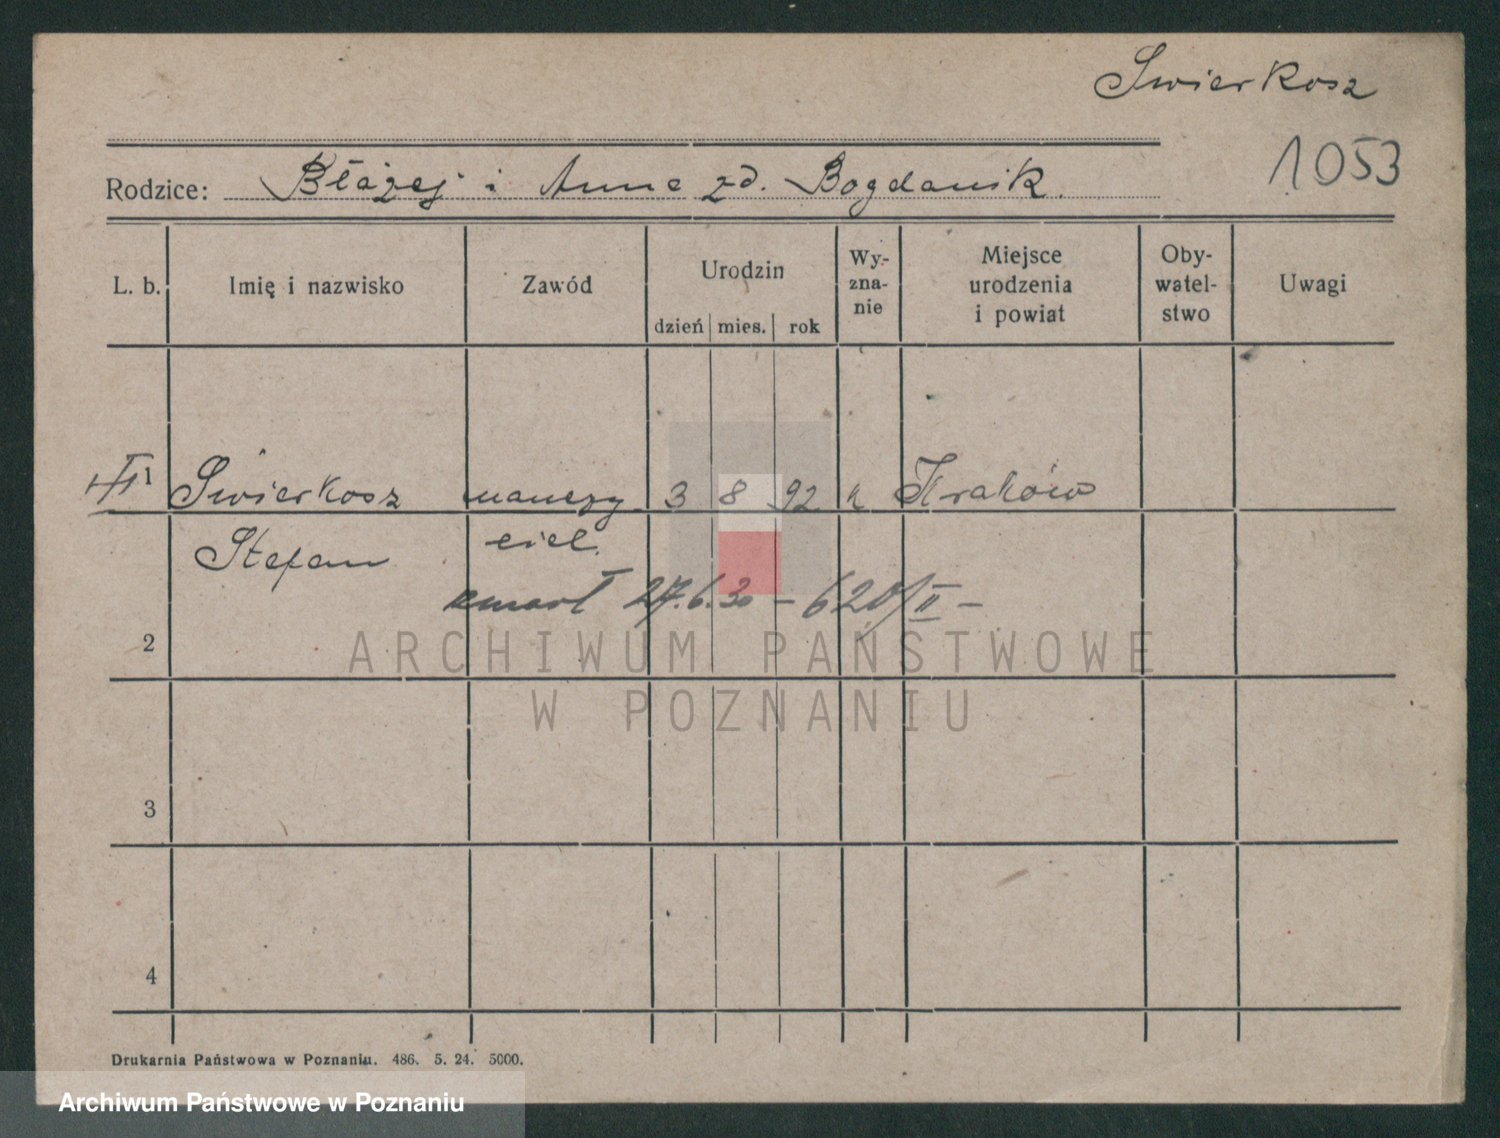 Swierkosz
1053
Rodzice: Błażej i Anna zd. Bogdanik.
L. b. Imię i nazwisko Zawód Urodzin dzień mies. rok Wy-zna-nie Miejsce urodzenia i powiat Oby-watel-stwo Uwagi
1 Swierkosz nauczy 3 8 92 k Kraków
Stefan ciel.
zmarł 27.6.30 – 620/II –
2
ARCHIWUM PAŃSTWOWE
W POZNANIU
3
4
Drukarnia Państwowa w Poznaniu. 486. 5. 24. 5000.
Archiwum Państwowe w Poznaniu